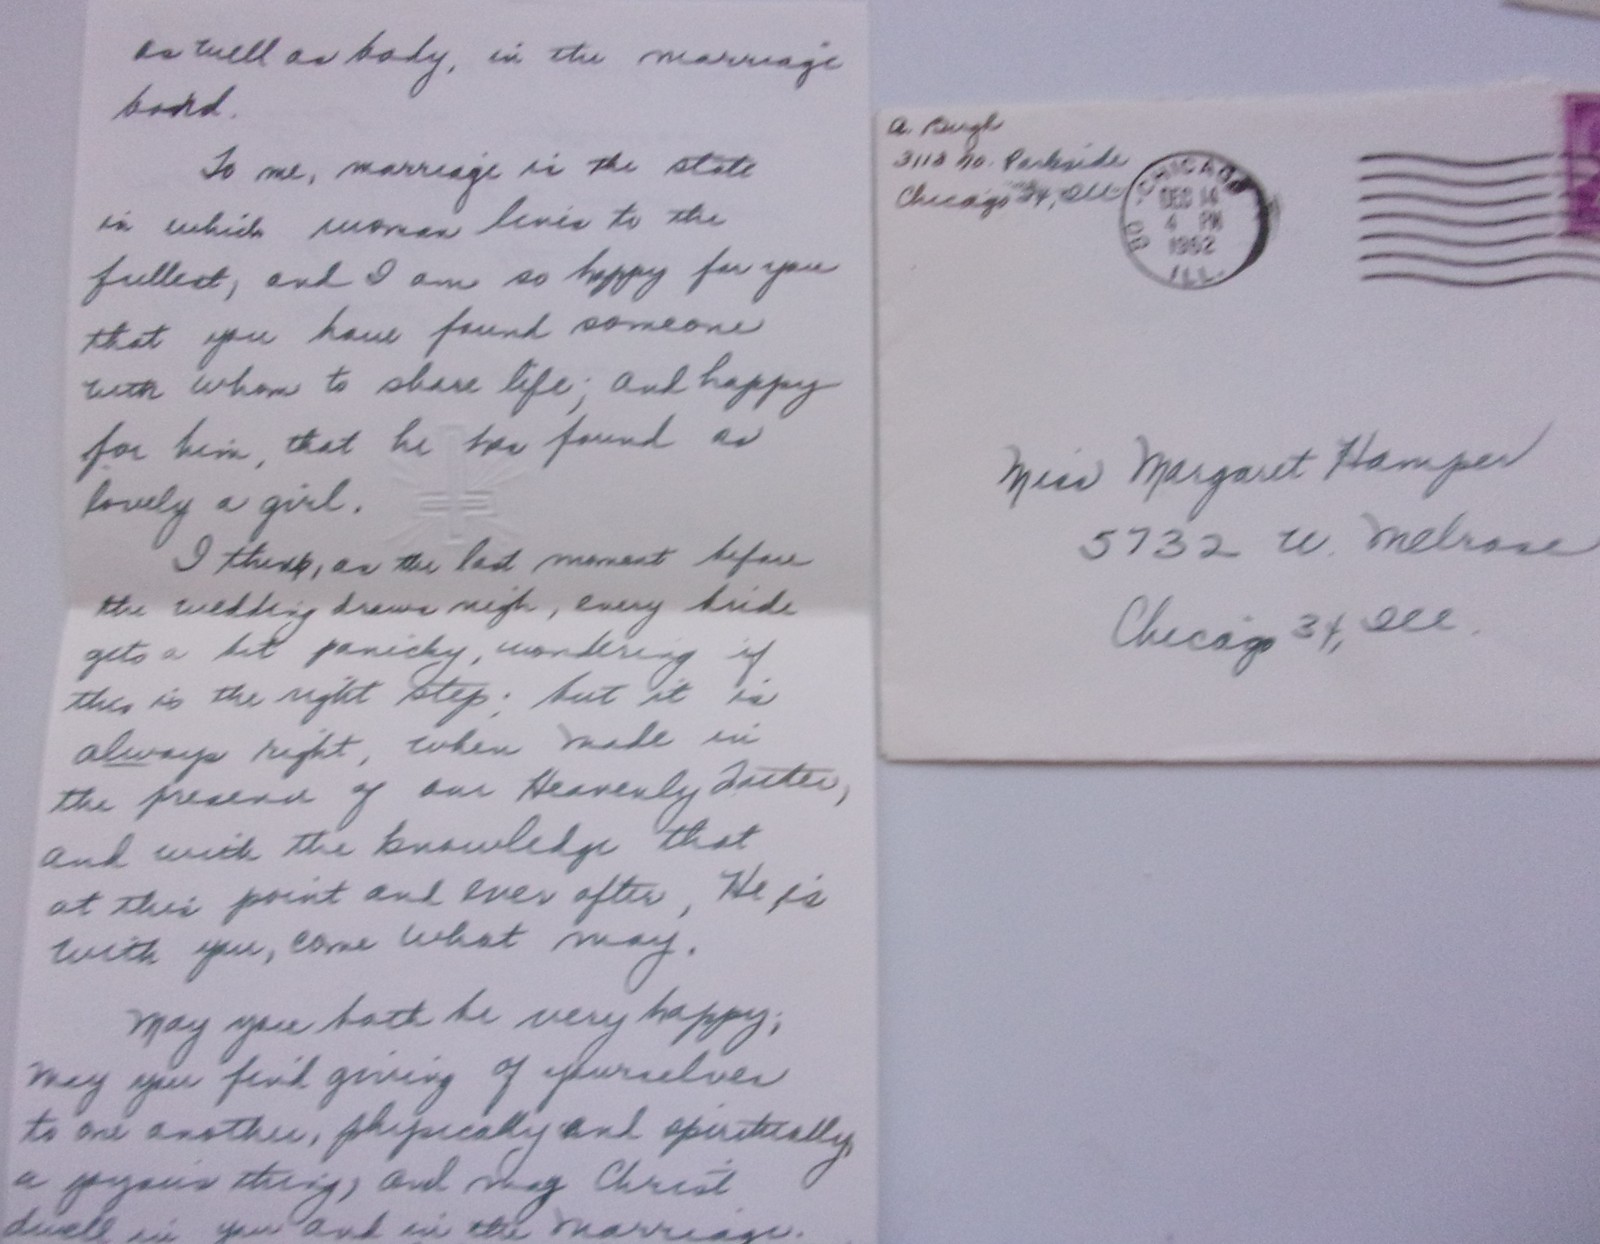 as well as body, in the marriage
bond.
To me, marriage is the state
in which woman lives to the
fullest, and I am so happy for you
that you have found someone
with whom to share life; and happy
for him, that he has found as
lovely a girl.
I think, as the last moment before
the wedding draws nigh, every bride
gets a bit panicky, wondering if
this is the right step; but it is
always right, when made in
the presence of our Heavenly Father,
and with the knowledge that
at this point and ever after, He is
with you, come what may.
May you both be very happy;
may you find giving of yourselves
to one another, physically and spiritually,
a joyous thing, and may Christ
dwell in you and in the marriage.
A.
3118 No. Parkside
Chicago 34, Ill
CHICAGO
DEC 14
4 PM
1952
ILL.
Miss Margaret Hamper
5732 W. Melrose
Chicago 34, Ill.